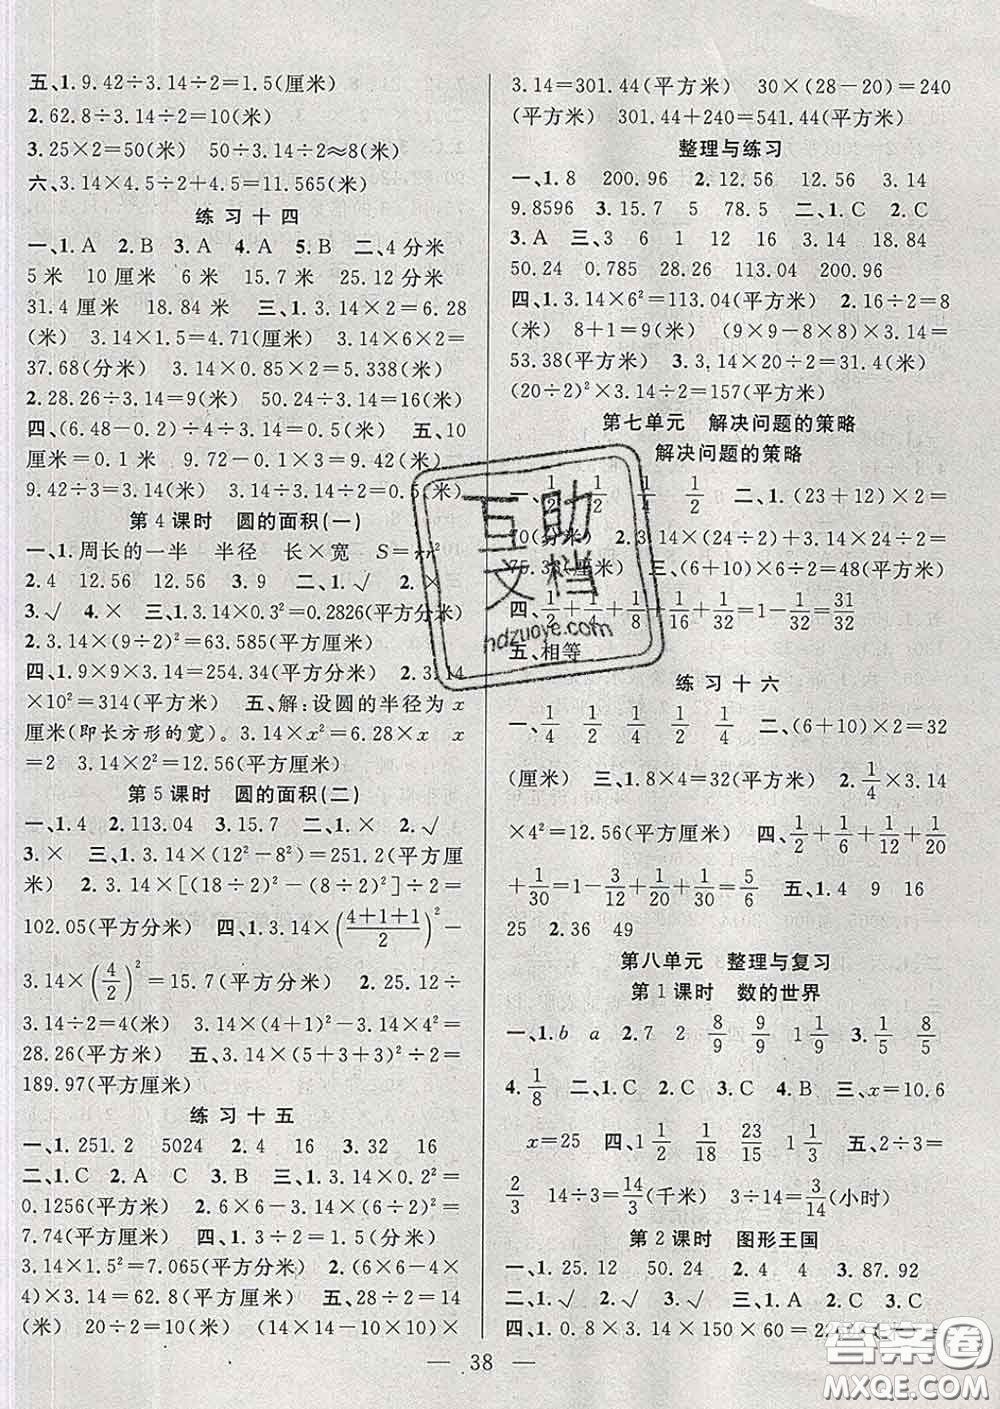 五、1. 9.42÷3.14÷2=1.5(厘米)
2. 62.8÷3.14÷2=10(米)
3. 25×2=50(米) 50÷3.14÷2≈8(米)
六、3.14×4.5÷2+4.5=11.565(米)
练习十四
一、1. A 2. B 3. A 4. A 5. B 二、4分米
5米 10厘米 6米 15.7米 25.12分米
31.4厘米 18.84米 三、1. 3.14×2=6.28
(米) 3.14×1.5=4.71(厘米) 3.14×6×2=
37.68(分米) 3.14×0.85×2=5.338(厘米)
2. 28.26÷3.14=9(米) 50.24÷3.14=16(米)
四、(6.48-0.2)÷4÷3.14=0.5(米) 五、10
厘米=0.1米 9.72-0.1-0.2=9.42(米)
9.42÷3.14=3(米) 3.14÷3.14÷2=0.5(米)
第4课时 圆的面积(一)
一、1. 周长的一半 半径 长×宽 S=πr²
2. 4 12.56 12.56 3. 9 二、1. √ 2. ×
3. √ 4. × 三、1. 3.14×0.3²=0.2826(平方分米)
2. 3.14×(9÷2)²=63.585(平方厘米)
四、1. 9×9×3.14=254.34(平方分米) 2. 3.14
×10²=314(平方米) 五、解:设圆的半径为x
厘米(即长方形的宽)。3.14×x²=6.28×x x
=2 3.14×2²=12.56(平方厘米)
第5课时 圆的面积(二)
一、1. 4 2. 113.04 3. 15.7 二、1. × 2. √
3. × 三、1. 3.14×(12²-8²)=251.2(平方厘
米) 2. 3.14×[(18÷2)²-(8÷2)²]÷2=
102.05(平方分米) 四、1. 3.14×((4+1+1)/2)²-
3.14×(4/2)²=15.7(平方分米) 2. 25.12÷
3.14÷2=4(米) 3.14×(4+1)²-3.14×4²=
28.26(平方米) 五、3.14×(5+3+3)²÷2=
189.97(平方厘米)
练习十五
一、1. 251.2 5024 2. 4 16 3. 32 16
二、1. C 2. A C A 3. B 三、1. 3.14×0.2²=
0.1256(平方米) 2. 6×6-3.14×(6÷2)²=
7.74(平方厘米) 四、1. 3÷2=1.5(分米)
3.14×1.5²=7.065(平方分米) 2. (6×6-4×
4)×3.14=62.8(平方厘米) 五、28÷2=14
(米) 20÷2=10(米) (14×14-10×10)×
3.14=301.44(平方米) 30×(28-20)=240
(平方米) 301.44+240=541.44(平方米)
整理与练习
一、1. 8 200.96 2. 12.56 12.56 3.14
9.8596 3. 15.7 5 78.5 二、1. C 2. C
3. A 三、3 6 1 12 16 3.14 18.84
50.24 0.785 28.26 113.04 200.96
四、1. 3.14×6²=113.04(平方米) 2. 16÷2=8
(米) 8+1=9(米) (9×9-8×8)×3.14=
53.38(平方米) 3. 3.14×20÷2=31.4(米)
(20÷2)²×3.14÷2=157(平方米)
第七单元 解决问题的策略
解决问题的策略
一、1/2 1/2 1/4 1/2 二、1. (23+12)×2=
70(分米) 2. 3.14×24=
75.36(厘米) 三、(6+10)×2÷2=48(平方米)
四、1/2+1/4+1/8+1/16+1/32=1-1/32=31/32
五、相等
练习十六
一、1/4 1/2 1/4 1/2 二、(6+10)×2=32
(厘米) 三、1. 8×4=32(平方米) 2. 1/4×3.14
×4²=12.56(平方厘米) 四、1/2+1/6+1/12+1/20
+1/30=1-3/12+1/20+1/30=5/6 五、1. 4 9 16
25 2. 36 49
第八单元 整理与复习
第1课时 数的世界
一、1. b a 2. 7 2 8/9 9/9 1 1/9 3. 1/5 8/5
4. 1/8 二、1. C 2. C 3. B 4. C 三、x=10.6
x=25 四、1 1/2 1/18 23/15 1 五、2÷3=
2/3 14÷3=14/3(千米) 3÷14=3/14(小时)
第2课时 图形王国
一、1. 25.12 50.24 2. 4 4 3. 87.92
二、1. √ 2. √ 3. √ 三、1. A 2. C 3. C
四、1. 0.8×3.14×150×60=
38
互助
文档
hdzuoye.com
答案圈
MXQE.COM